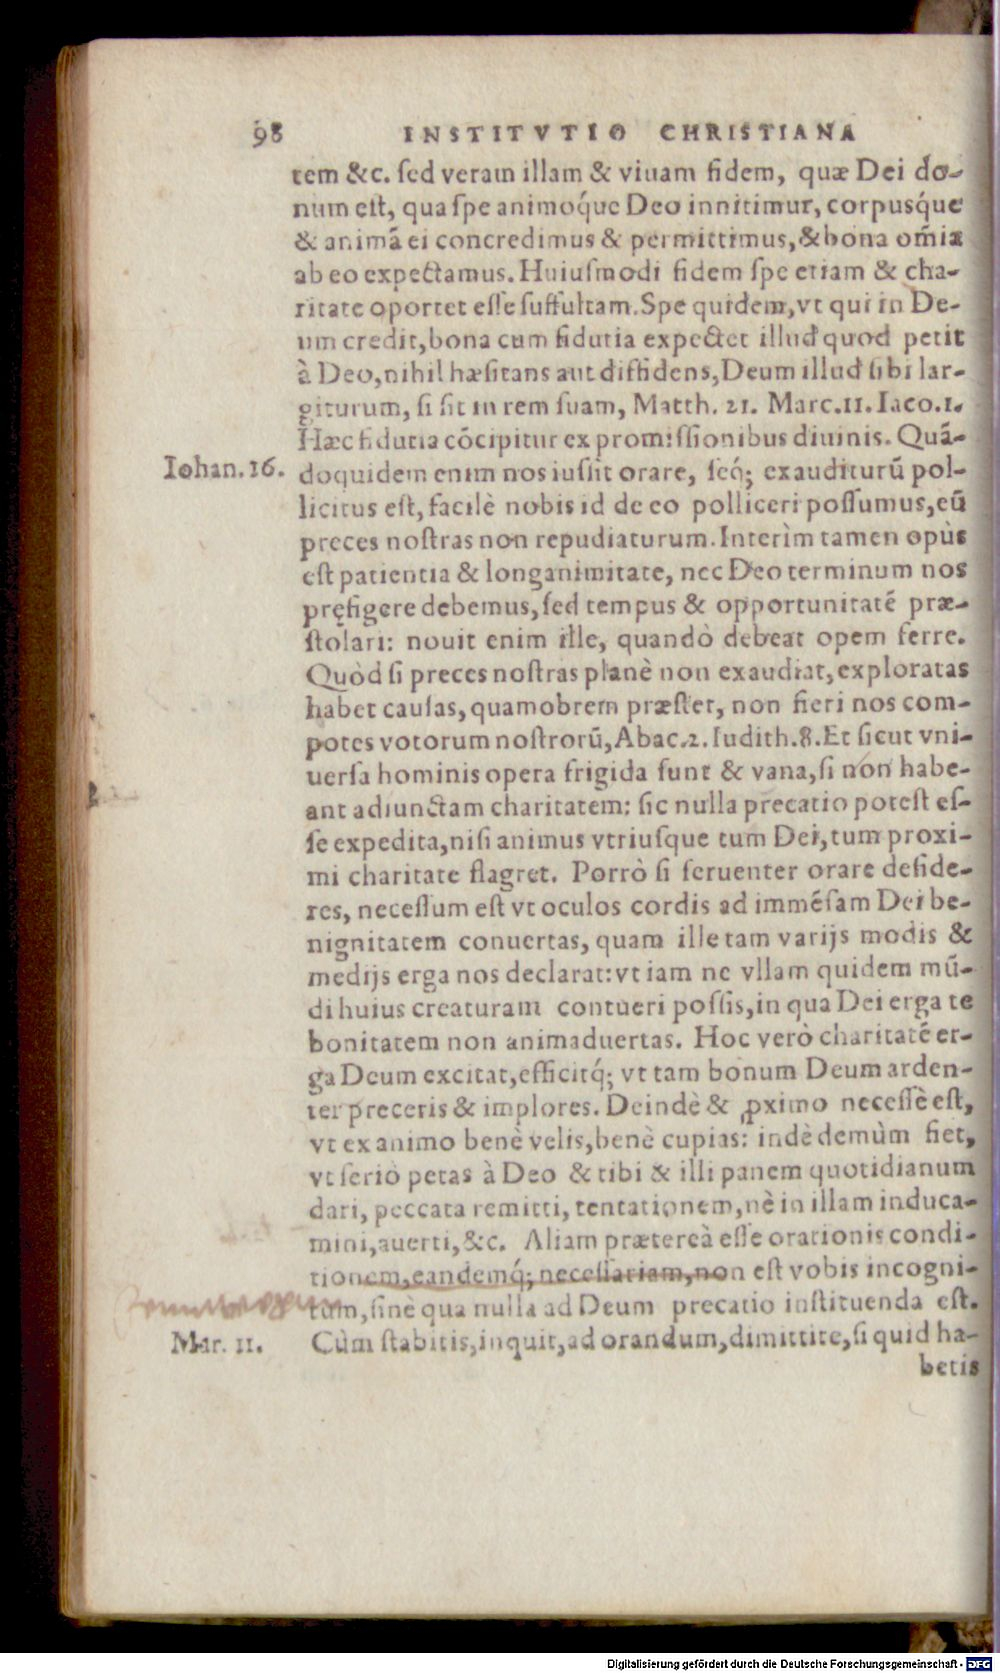 98 INSTITVTIO CHRISTIANA
tem &c. sed veram illam & viuam fidem, quæ Dei do-
num est, qua spe animoq́ue Deo innitimur, corpusq́ue
& animā ei concredimus & permittimus, & bona om̄ia
ab eo expectamus. Huiusmodi fidem spe etiam & cha-
ritate oportet esse suffultam. Spe quidem, vt qui in De-
um credit, bona cum fidutia expectet illud quod petit
à Deo, nihil hæsitans aut diffidens, Deum illud sibi lar-
giturum, si sit in rem suam, Matth. 21. Marc. 11. Iaco. 1.
Hæc fidutia cōcipitur ex promissionibus diuinis. Quā-
Iohan. 16. doquidem enim nos iussit orare, seq́; exauditurū pol-
licitus est, facilè nobis id de eo polliceri possumus, eū
preces nostras non repudiaturum. Interìm tamen opùs
est patientia & longanimitate, nec Deo terminum nos
pręfigere debemus, sed tempus & opportunitatē præ-
stolari: nouit enim ille, quandò debeat opem ferre.
Quòd si preces nostras planè non exaudiat, exploratas
habet causas, quamobrem præstet, non fieri nos com-
potes votorum nostrorū, Abac. 2. Iudith. 8. Et sicut vni-
uersa hominis opera frigida sunt & vana, si non habe-
ant adiunctam charitatem: sic nulla precatio potest es-
se expedita, nisi animus vtriusque tum Dei, tum proxi-
mi charitate flagret. Porrò si feruenter orare deside-
res, necessum est vt oculos cordis ad immēsam Dei be-
nignitatem conuertas, quam ille tam varijs modis &
medijs erga nos declarat: vt iam ne vllam quidem mū-
di huius creaturam contueri possis, in qua Dei erga te
bonitatem non animaduertas. Hoc verò charitatē er-
ga Deum excitat, efficitq́; vt tam bonum Deum arden-
ter preceris & implores. Deindè & ꝓximo necessè est,
vt ex animo benè velis, benè cupias: indè demùm fiet,
vt seriò petas à Deo & tibi & illi panem quotidianum
dari, peccata remitti, tentationem, nè in illam induca-
mini, auerti, &c. Aliam prætereà esse orationis condi-
tionem, eandemq́; necessariam, non est vobis incogni-
tum, sinè qua nulla ad Deum precatio instituenda est.
Mar. 11. Cùm stabitis, inquit, ad orandum, dimittite, si quid ha-
betis
Digitalisierung gefördert durch die Deutsche Forschungsgemeinschaft - DFG